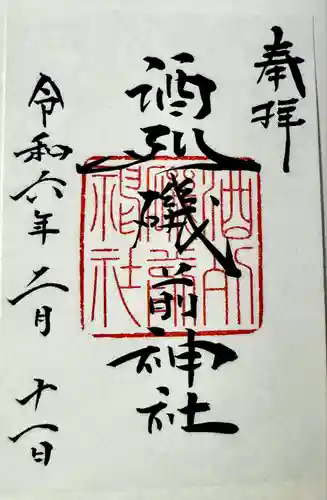 奉拝
酒列磯前神社
令和六年十二月十一日
酒列磯前神社